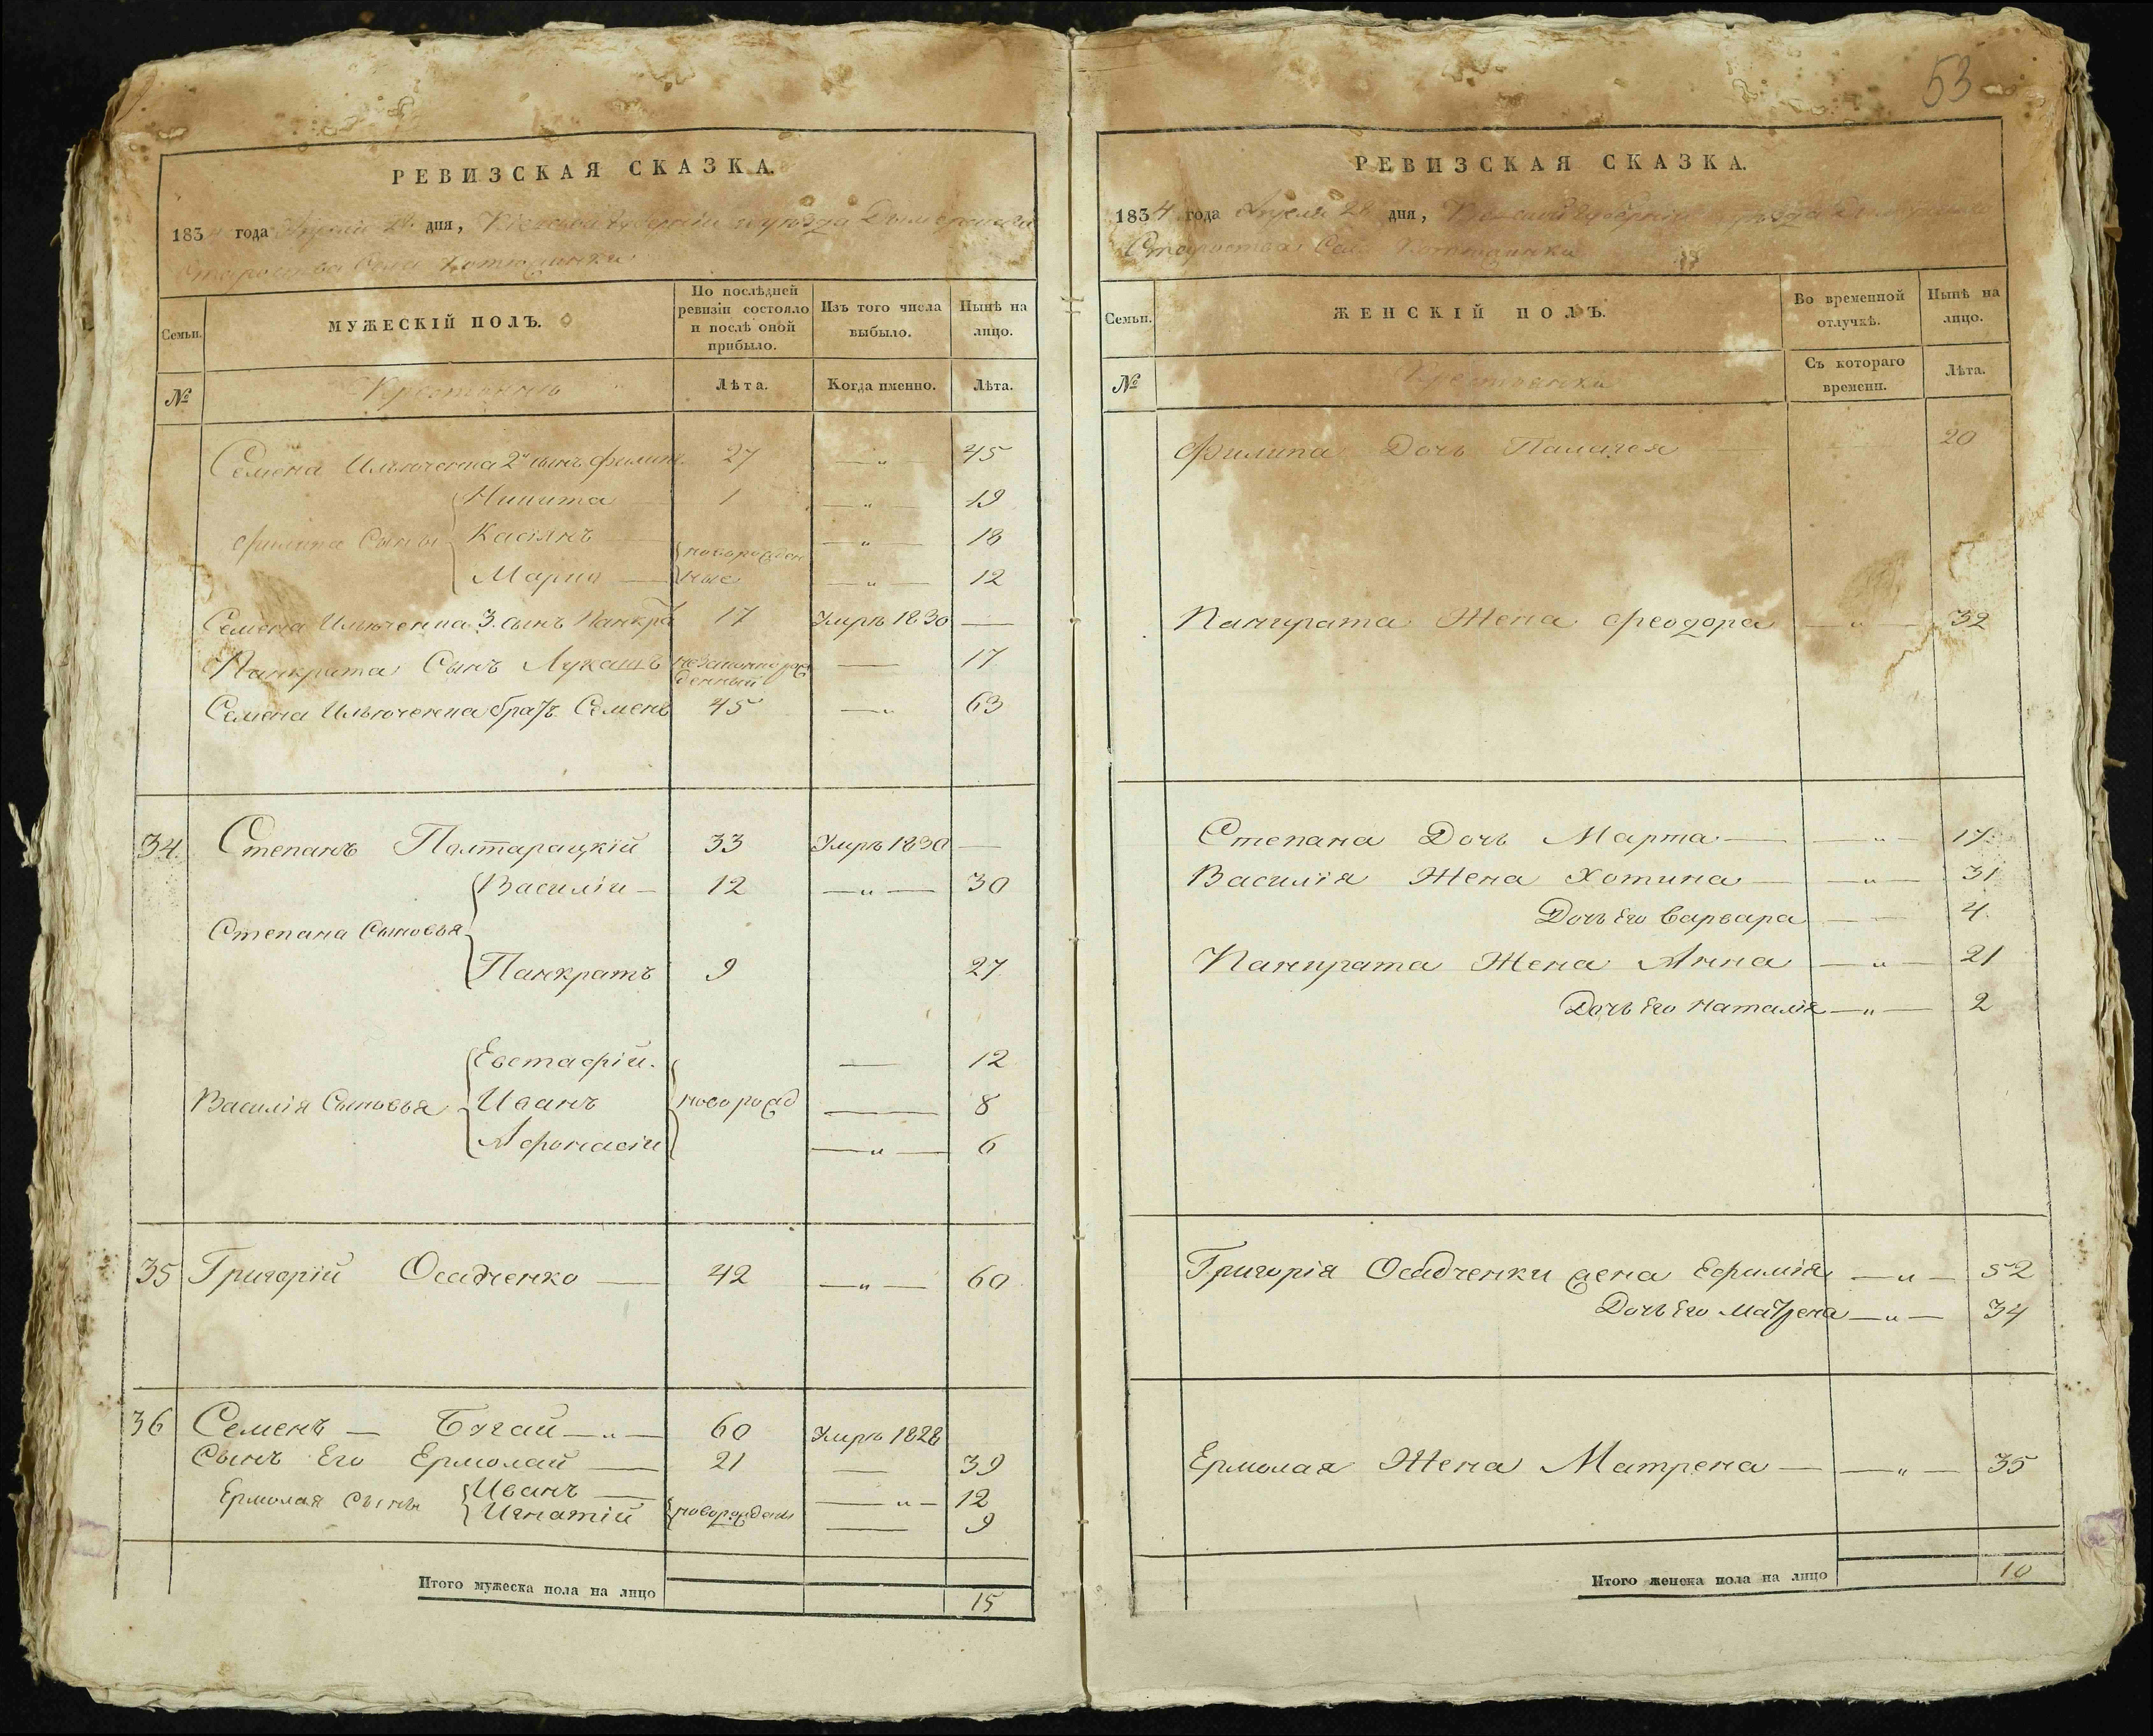 РЕВИЗСКАЯ СКАЗКА.
1834 года Апреля 28 дня, Кіевской Губерніи и уѣзда Дымерскаго
Староства Села
Семьи.
МУЖЕСКІЙ ПОЛЪ.
По послѣдней ревизіи состояло и послѣ оной прибыло.
Изъ того числа выбыло.
Нынѣ на лицо.
№
Крестьянъ
Лѣта.
Когда именно.
Лѣта.
Семена Ильюченка 2й сынъ Филипъ 27 —„— 45
Никита — 1 —„— 19
Филипа Сыны Касіянъ —„— 18
новорожденные
Марко — —„— 12
Семена Ильюченка 3. сынъ Панкра 17 Умръ 1830 —
Панкрата Сынъ Лукашъ незаконнорожденный — 17
Семена Ильюченка братъ Семенъ 45 —„ 63
34. Степанъ Полтарацкій 33 Умръ 1830 —
Василій — 12 —„— 30
Степана Сыновья
Панкратъ 9 27
Евстафій. — 12
Василія Сыновья Иванъ новорожд — 8
Афонасій —„— 6
35 Григорій Осадченко — 42 —„— 60
36 Семенъ — Бугай —„— 60 Умръ 1828
Сынъ Его Ермолай — 21 — 39
Иванъ — —„— 12
Ермолая Сыны Игнатій новорожден — 9
Итого мужеска пола на лицо 15
53
РЕВИЗСКАЯ СКАЗКА.
1834 года Апреля 28 дня, Кіевской Губерніи и уѣзда
Староства
Семьи.
ЖЕНСКІЙ ПОЛЪ.
Во временной отлучкѣ.
Нынѣ на лицо.
№
Крестьянки
Съ котораго времени.
Лѣта.
Филипа Дочь Палагея — 20
Панкрата Жена Феодора —„— 32
Степана Дочь Марта — —„— 17
Василія Жена Хотина — —„— 31
Дочь Его Варвара — 4
Панкрата Жена Анна —„— 21
Дочь Его Наталія —„— 2
Григорія Осадченки жена Ефимія —„— 52
Дочь Его Матрена —„— 34
Ермолая Жена Матрена — —„— 35
Итого женска пола на лицо 10